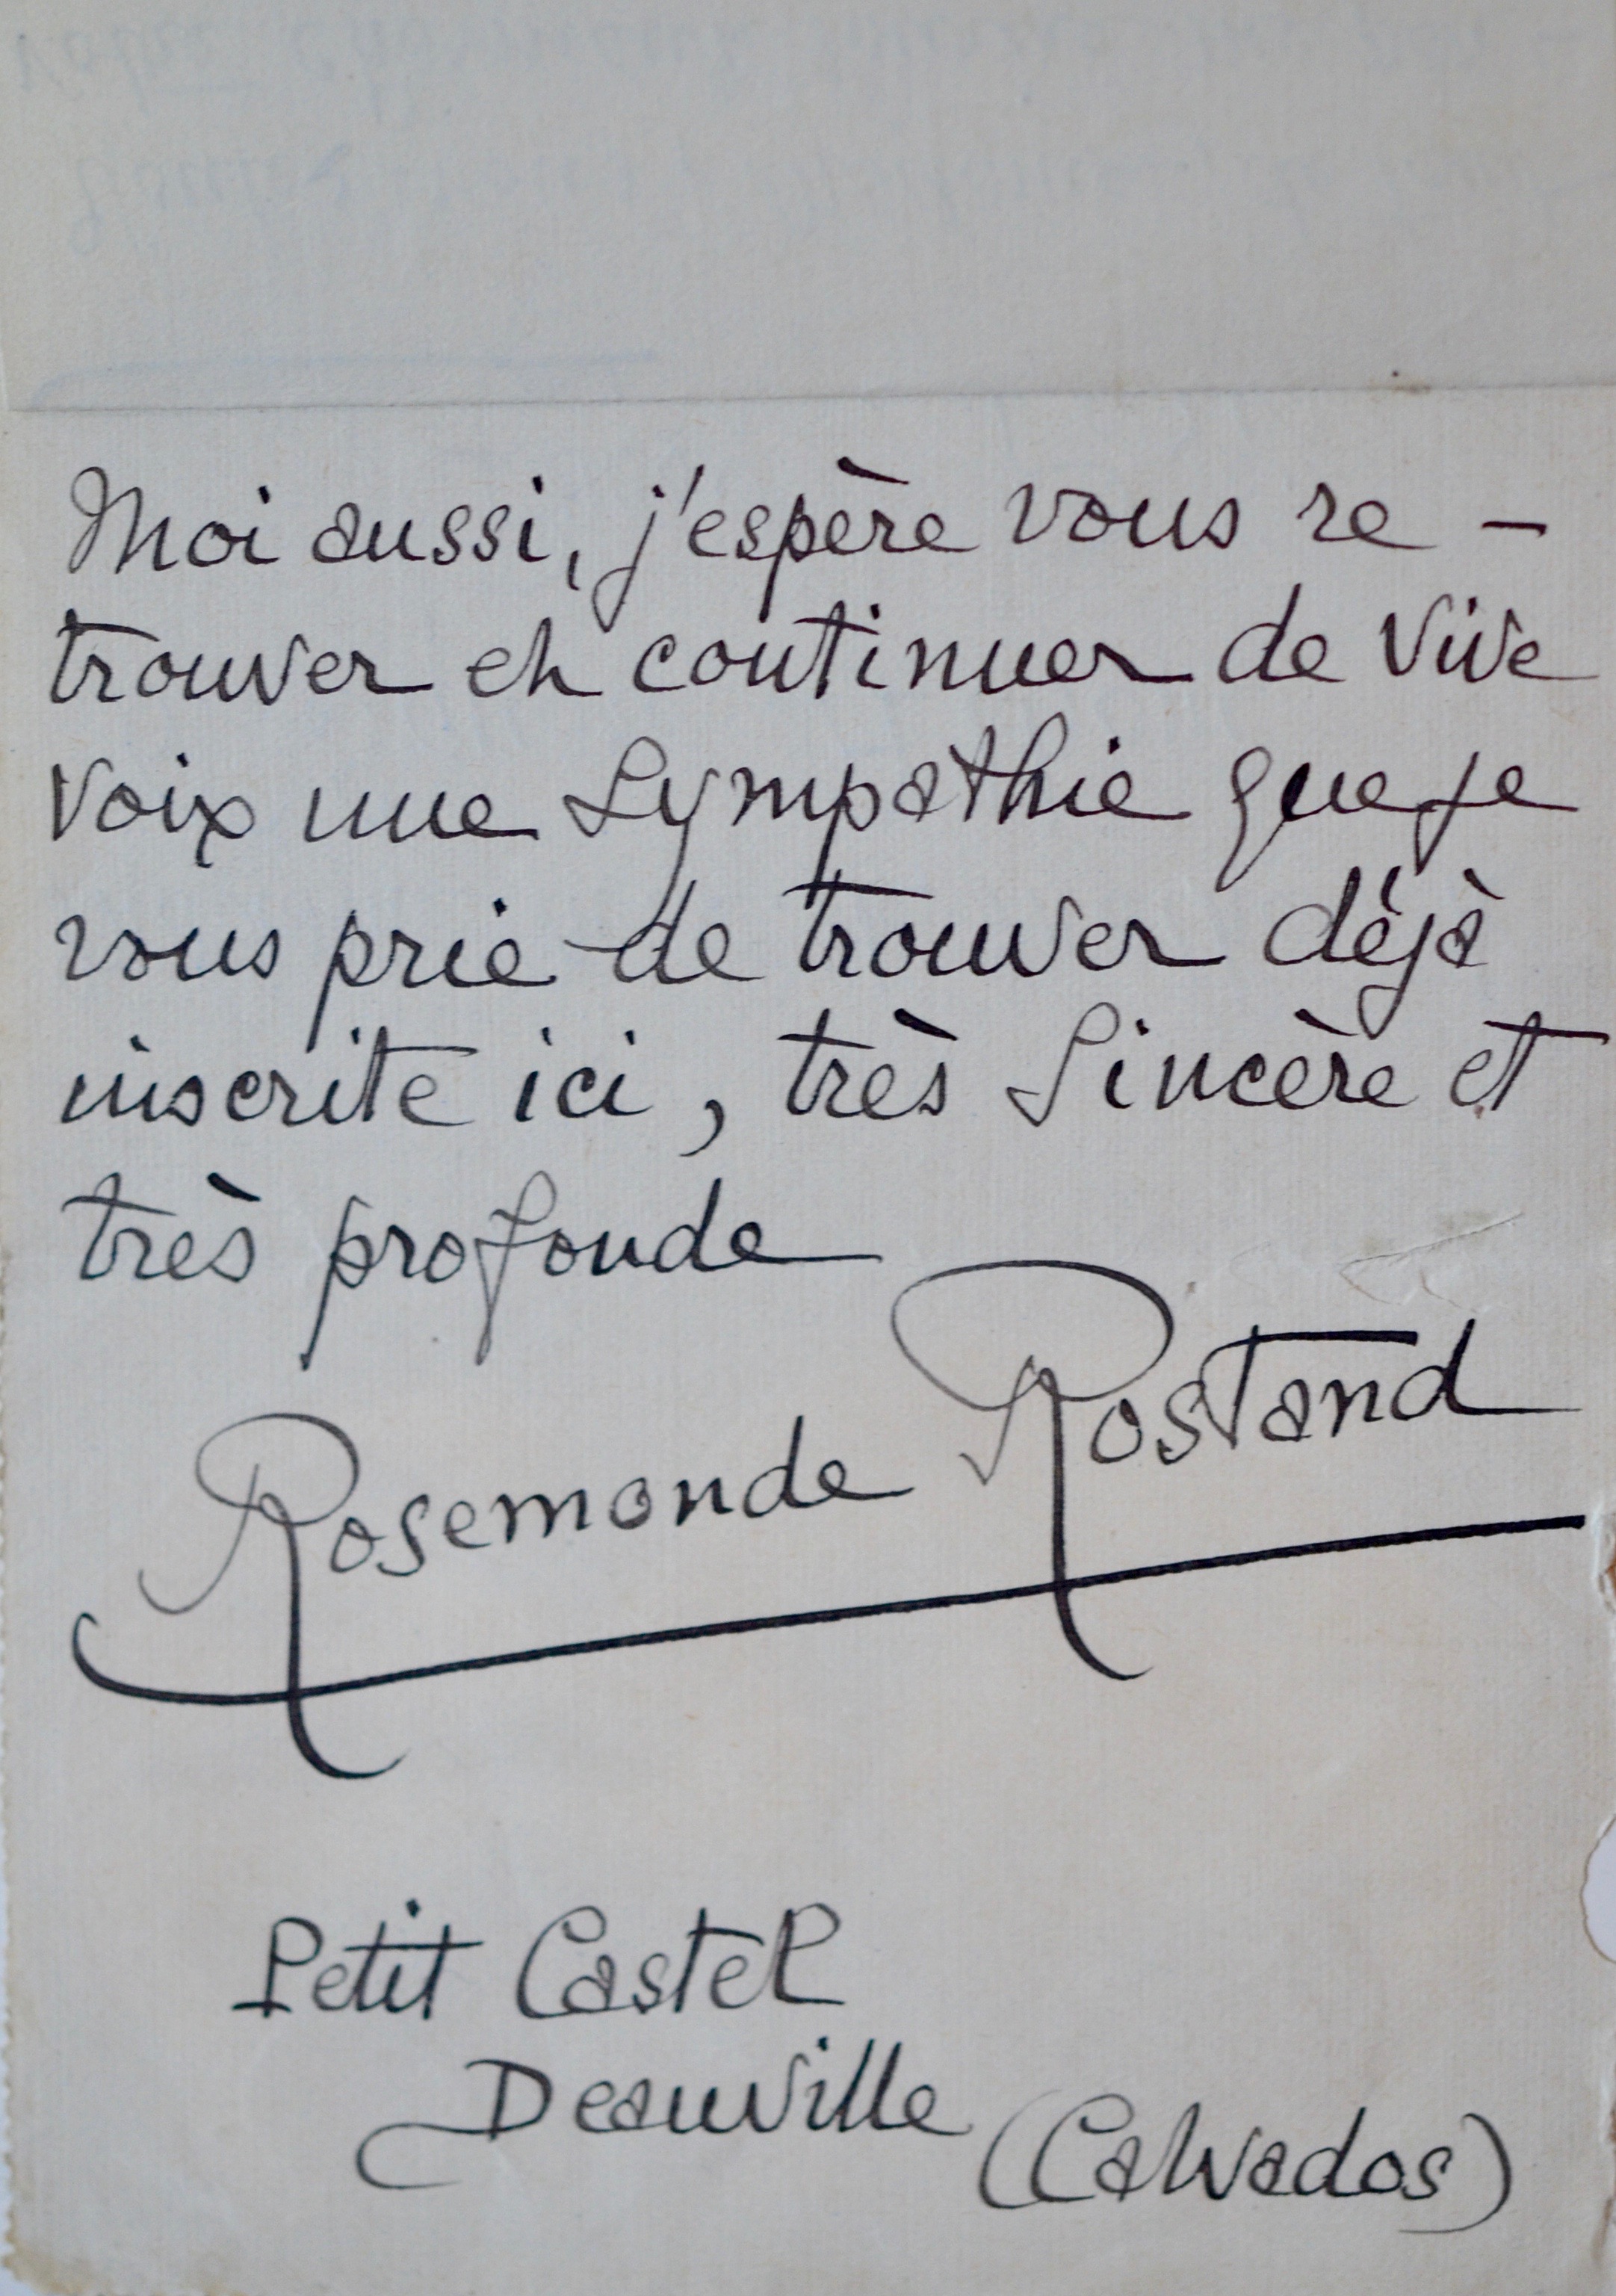 Moi aussi, j'espère vous re-
trouver et continuer de vive
voix une sympathie que je
vous prie de trouver déjà
inscrite ici, très sincère et
très profonde
Rosemonde Rostand
Petit Castel
Deauville
(Calvados)